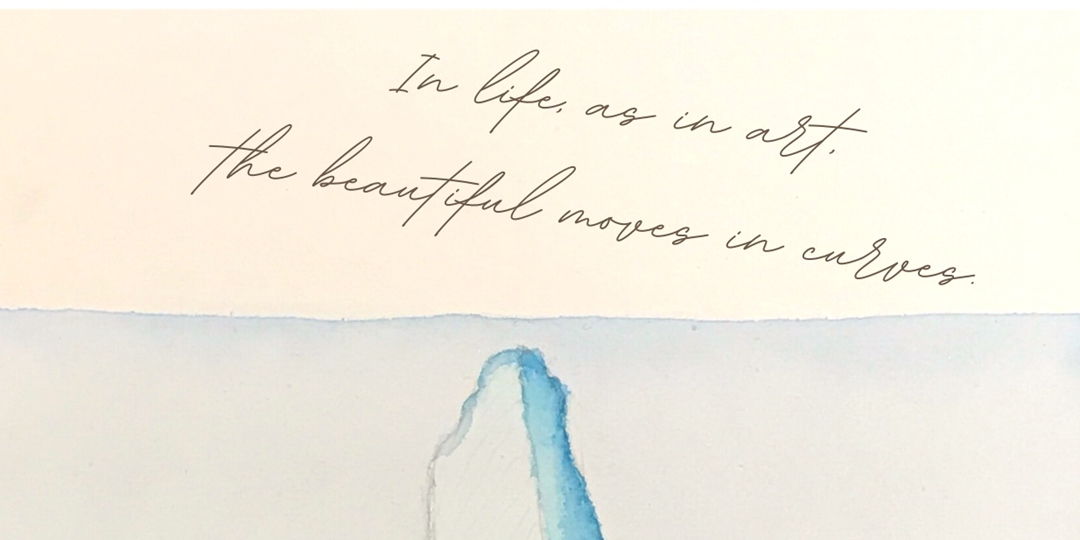 In life, as in art,
the beautiful moves in curves.